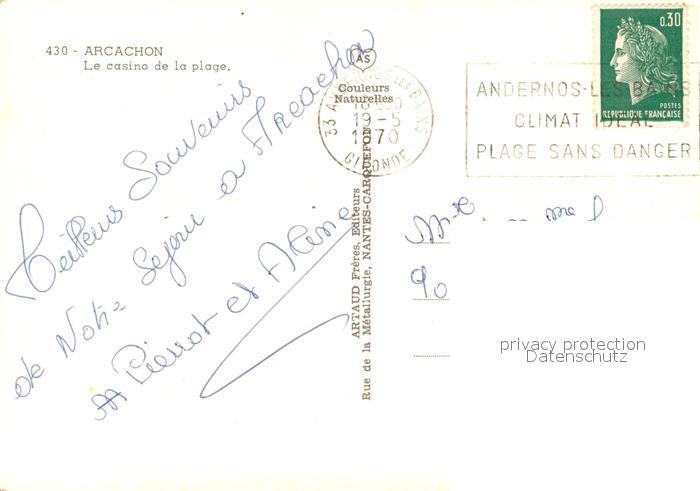 430 - ARCACHON
Le casino de la plage.
Meilleurs Souvenirs
de Notre Sejour a Arcachon
Pierrot et Aline
AS
Couleurs
Naturelles
33 ANDERNOS-LES-BAINS
19-5
1970
GIRONDE
ARTAUD Frères, Editeurs
Rue de la Métallurgie, NANTES-CARQUEFOU
ANDERNOS-LES-BAINS
CLIMAT IDEAL
PLAGE SANS DANGER
0,30
POSTES
REPUBLIQUE FRANÇAISE
90
privacy protection
Datenschutz